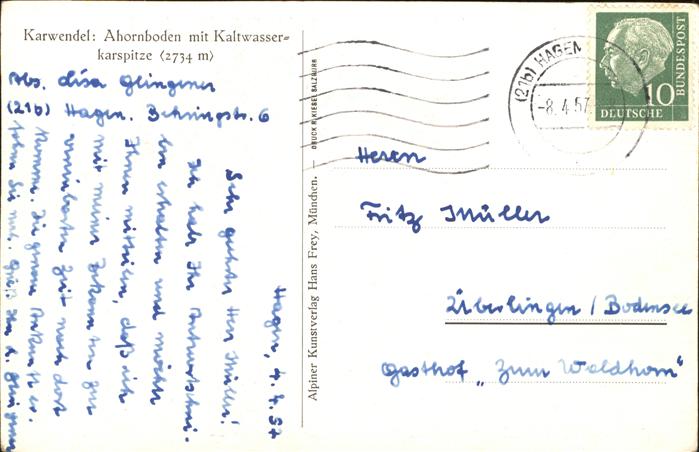 Karwendel: Ahornboden mit Kaltwasser=
karspitze (2734 m)
Abs. Lisa Glingener
(21b) Hagen. Behringstr. 6
Hagen, 4.4.57
Sehr geehrter Herr Müller!
Ich habe Ihr Antwortschrei-
ben erhalten und möchte
Ihnen mitteilen, daß ich
mit meiner Bekannten zur
vereinbarten Zeit nach dort
komme. Die genaue Ankunft er-
fahren Sie noch. Gruß
Alpiner Kunstverlag Hans Frey, München. —
DRUCK R. KIESEL SALZBURG
(21b) HAGEN
-8.4.57
10
DEUTSCHE
BUNDESPOST
Herrn
Fritz Müller
Überlingen / Bodensee
Gasthof „Zum Waldhorn"